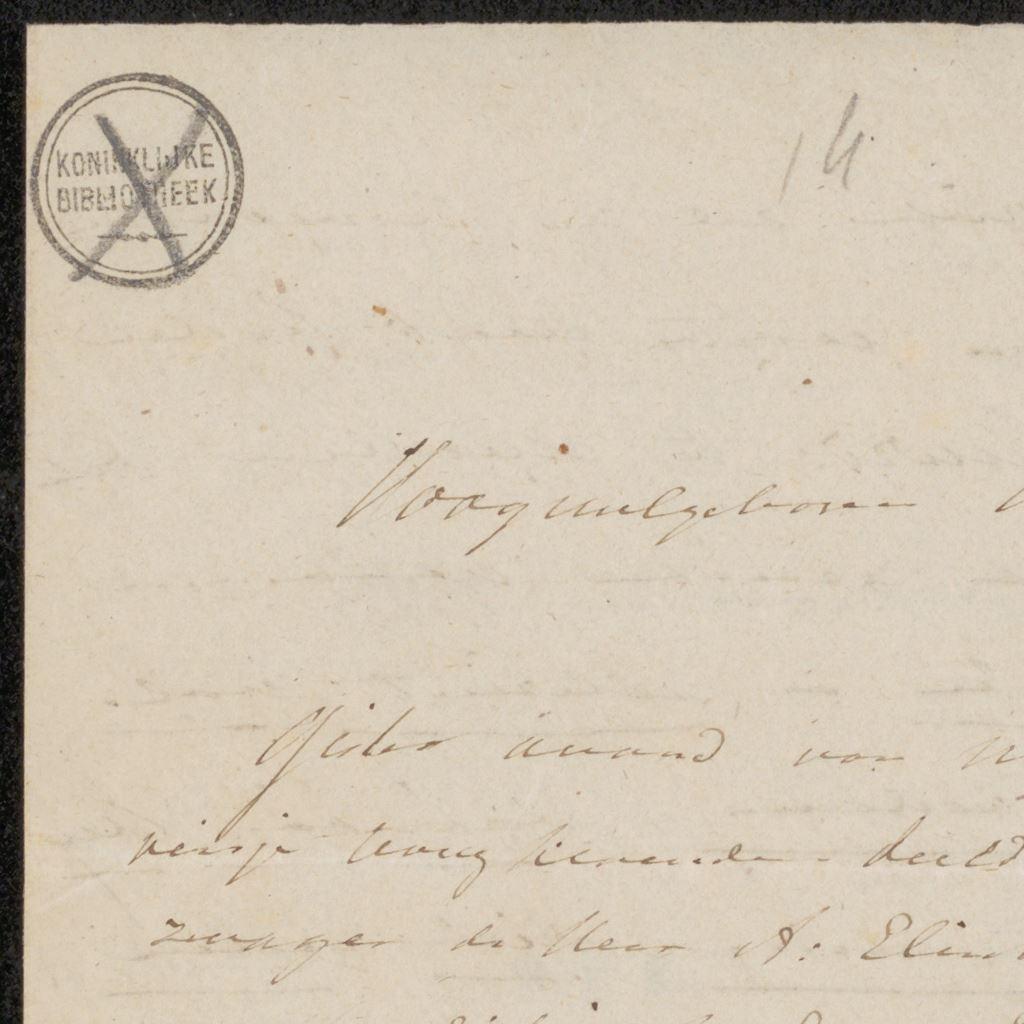 KONINKLIJKE
BIBLIOTHEEK
14
Hoogwelgeboren
Gister avond van
reisje terug keerende deeld
zwager de Heer A: Elin